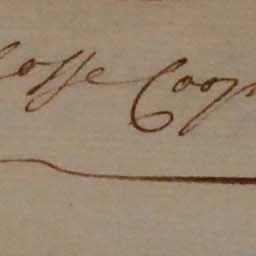 losse Coop